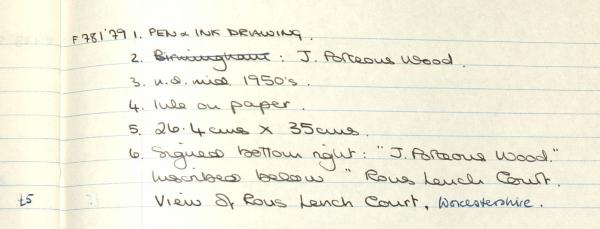 F781'79 1. PEN & INK DRAWING.
2. Birmingham: J. Porteous Wood.
3. n.d. mid 1950's.
4. Ink on paper.
5. 26.4cms x 35cms.
6. Signed bottom right: "J. Porteous Wood."
Inscribed below "Rous Lench Court.
£5 View of Rous Lench Court, Worcestershire.